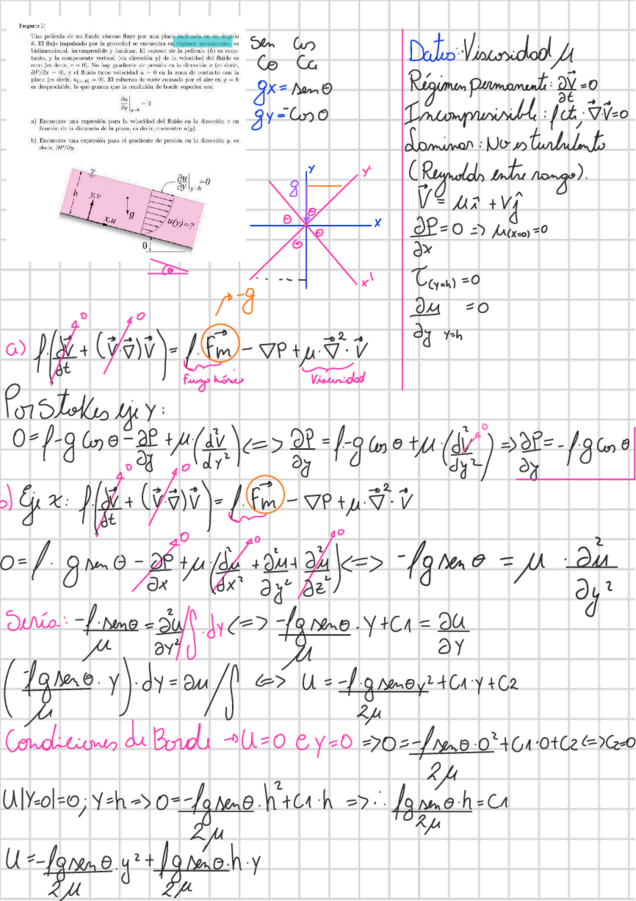 Pregunta 2:
Una película de un fluido viscoso fluye por una placa inclinada en un ángulo
θ. El flujo impulsado por la gravedad se encuentra en régimen permanente, es
bidimensional, incompresible y laminar. El espesor de la película (h) es cons-
tante, y la componente vertical (en dirección y) de la velocidad del fluido es
cero (es decir, v = 0). No hay gradiente de presión en la dirección x (es decir,
∂P/∂x = 0), y el fluido tiene velocidad u = 0 en la zona de contacto con la
placa (es decir, u(y=0) = 0). El esfuerzo de corte causado por el aire en y = h
es despreciable, lo que genera que la condición de borde superior sea:
∂u/∂y|y=h = 0
a) Encuentre una expresión para la velocidad del fluido en la dirección x en
función de la distancia de la placa, es decir, encuentre u(y).
b) Encuentre una expresión para el gradiente de presión en la dirección y, es
decir, ∂P/∂y.
Sen Cos
CO CA
gx = senθ
gy = -Cosθ
Datos: Viscosidad μ
Régimen permanente: ∂V⃗/∂t = 0
Incompresisible: ρ cte, ∇⃗·V⃗=0
Laminar: No es turbulento
(Reynolds entre rango).
V⃗ = μî + Vĵ
∂P/∂x = 0 => μ(x=0) = 0
τ(y=h) = 0
∂u/∂y y=h = 0
?
h
y,v
g
x,u
u(y)=?
∂u/∂y|y=h = 0
θ
θ
Y
Y'
g
θ
θ
θ
θ
X
X'
-g
a) ρ·(∂V⃗/∂t + (V⃗·∇⃗)V⃗) = ρ·F⃗m - ∇P + μ·∇⃗²·V⃗
0 0
Viscosidad
Por Stokes eje Y:
0 = ρ·-g cosθ - ∂P/∂y + μ·(d²V/dy²) <=> ∂P/∂y = ρ·-g cosθ + μ·(d²V/dy²) => ∂P/∂y = -ρ·g cosθ
0
b) Eje x: ρ·(∂V⃗/∂t + (V⃗·∇⃗)V⃗) = ρ·F⃗m - ∇P + μ·∇⃗²·V⃗
0 0
0 = ρ·g senθ - ∂P/∂x + μ·(∂²u/∂x² + ∂²u/∂y² + ∂²u/∂z²) <=> -ρg senθ = μ·∂²u/∂y²
0 0 0
Sería: -ρ·senθ/μ = ∂²u/∂y² /∫·dy <=> -ρg senθ/μ·Y + C1 = ∂u/∂Y
(-ρg senθ/μ·y)·dy = ∂u /∫ <=> U = -ρ·g senθ y²/2μ + C1·y + C2
Condiciones de Borde → U=0 e Y=0 => 0 = -ρ senθ·0²/2μ + C1·0 + C2 <=> C2=0
U|Y=0|=0; Y=h => 0 = -ρg senθ/2μ·h² + C1·h => ∴ ρg senθ·h/2μ = C1
U = -ρg senθ/2μ·y² + ρg senθ/2μ·h·y